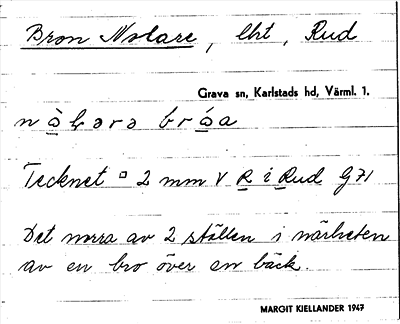 Bron Nolare, lht, Rud
Grava sn, Karlstads hd, Värml. 1.
bróa
Tecknet ▫ 2 mm V R i Rud G71
Det norra av 2 ställen i närheten
av en bro över en bäck.
MARGIT KIELLANDER 1947